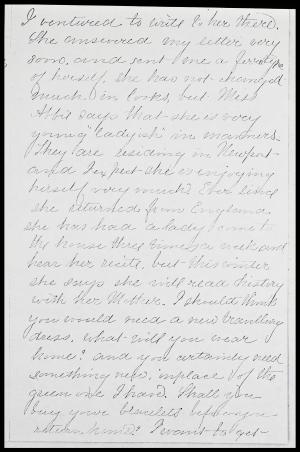 I ventured to write to her there.
She answered my letter very
soon, and sent me a ferrotype
of herself, she has not changed
much in looks, but Miss
Abbie says that she is very
young "ladyish" in manners.
They are residing in Newport
and I expect she is enjoying
herself very much. Ever since
she returned from England,
she has had a lady come to
the house three times a week and
hear her recite, but this winter
she says she will read history
with her Mother. I should think
you would need a new travelling
dress, what will you wear
home? and you certainly need
something new, in place of the
green one I hand. Shall you
buy your bracelets before you
return home? I want to get